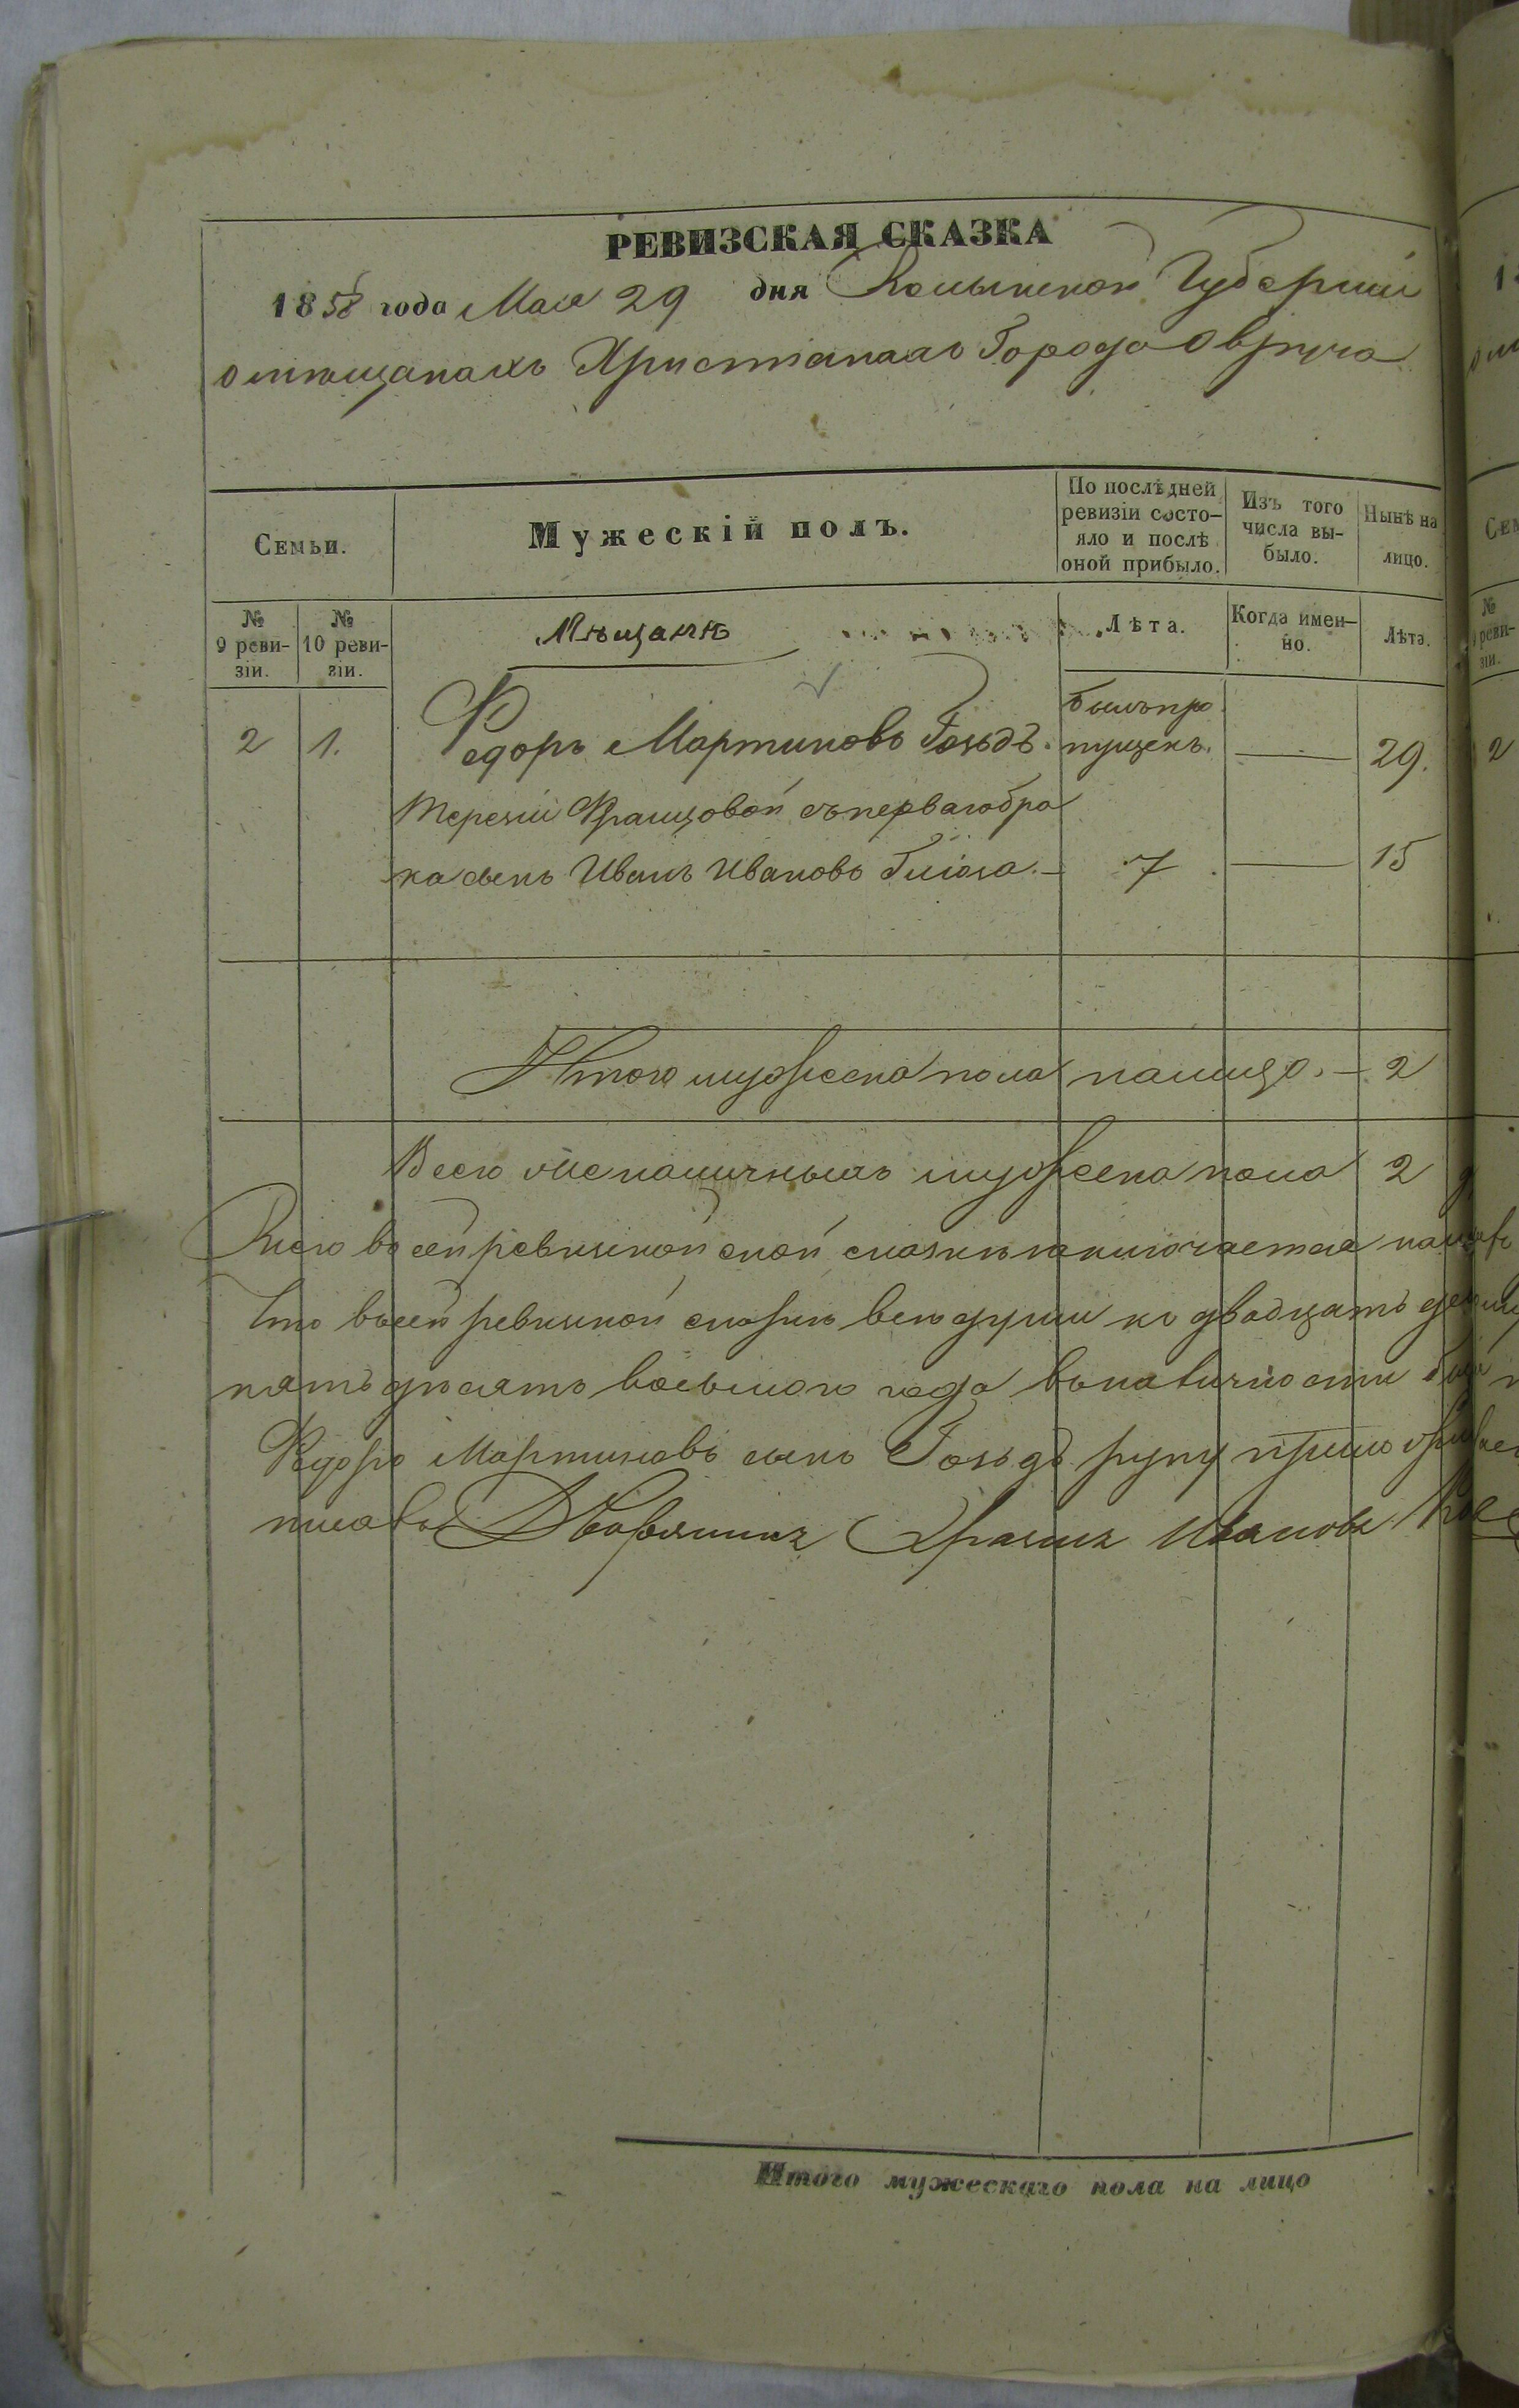 РЕВИЗСКАЯ СКАЗКА
1858 года Мая 29 дня Волынской Губернии
о мѣщанахъ Христианахъ Города Овруча
Семьи.
Мужескій полъ.
По послѣдней ревизіи состо-
яло и послѣ оной прибыло.
Изъ того числа вы-
было.
Нынѣ на лицо.
№ 9 реви-
зіи.
№ 10 реви-
зіи.
Мѣщанѣ
Лѣта.
Когда имен-
но.
Лѣта.
2 1. Федоръ Мартиновъ Гольдъ. былъ про
пущенъ. — 29.
Терезіи Францовой съ перваго бра
ка сынъ Иванъ Ивановъ — 7 — 15
Итого мужеска пола налицо. — 2
Всего наличныхъ мужеска пола 2
въ сей ревизской сказкѣ заключается
Что въ сей ревизской скаскѣ всѣ души по двадцать
пятьдесятъ восьмого года въ наличности
Федоръ Мартиновъ сынъ Гольдъ
Дворянинъ Ивановъ
Итого мужескаго пола на лицо